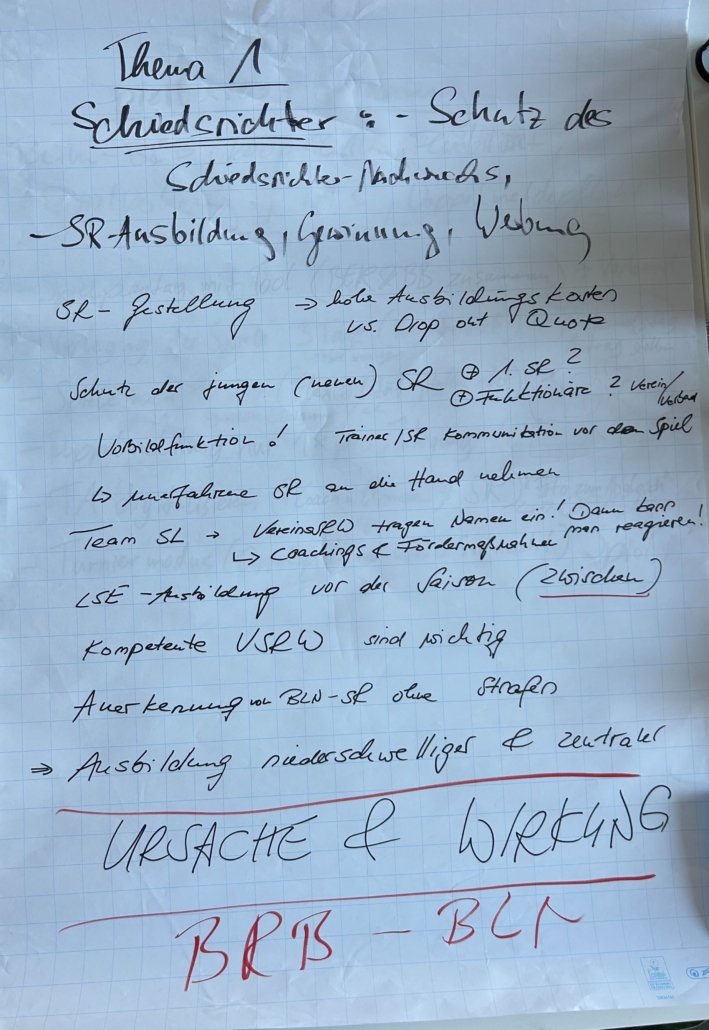 Thema 1
Schiedsrichter : - Schutz des
Schiedsrichter-Nachwuchs,
- SR-Ausbildung, Gewinnung, Webung
SR - Gestellung → hohe Ausbildungskosten
vs. Drop out Quote
Schutz der jungen (neuen) SR ⊕ 1. SR ?
⊕ Funktionäre ? Verein/
Verband
Vorbildfunktion! Trainer/SR Kommunikation vor dem Spiel
↳ unerfahrene SR an die Hand nehmen
Team SL → VereinsSRW tragen Namen ein! Dann kann
man reagieren!
↳ Coachings & Fördermaßnahmen
LSE - Ausbildung vor der Saison (zwischen)
Kompetente VSRW sind wichtig
Anerkennung von BLN-SR ohne Strafen
⇒ Ausbildung niederschwelliger & zentraler
URSACHE & WIRKUNG
BRB - BLN